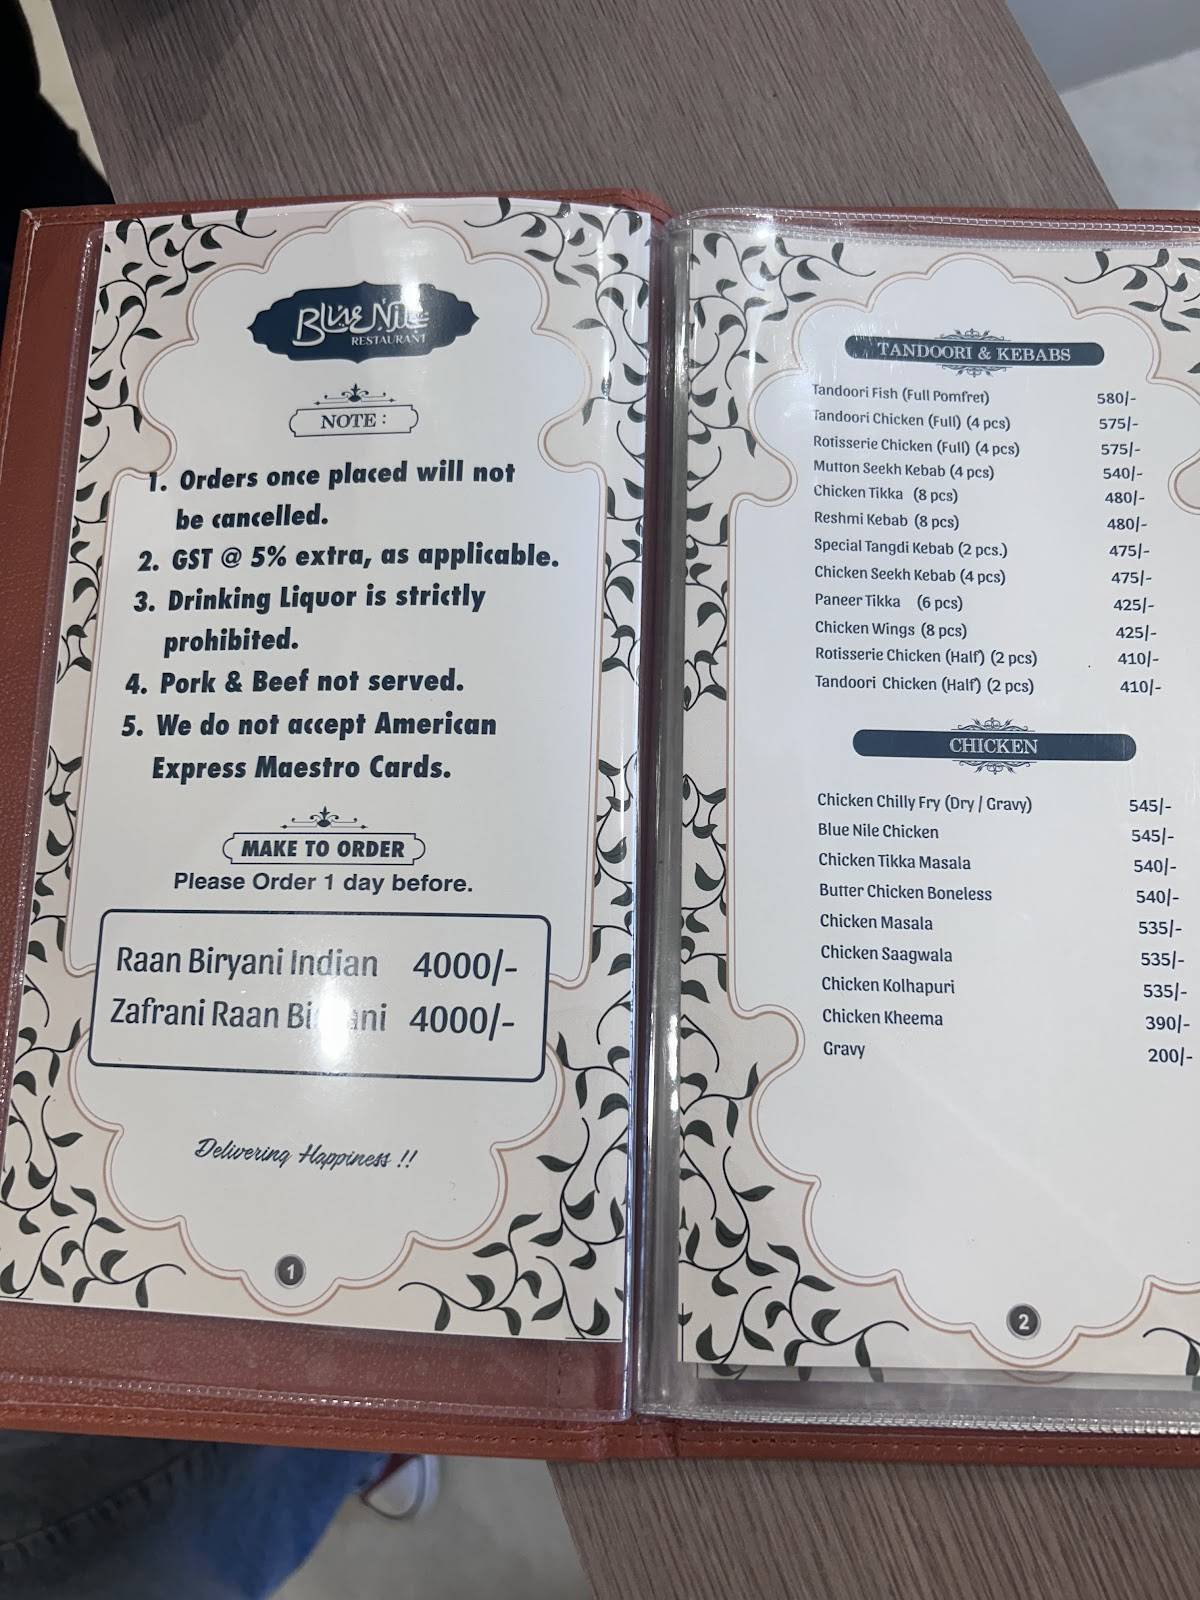 BLUE NILE
RESTAURANT
NOTE :
1. Orders once placed will not
be cancelled.
2. GST @ 5% extra, as applicable.
3. Drinking Liquor is strictly
prohibited.
4. Pork & Beef not served.
5. We do not accept American
Express Maestro Cards.
MAKE TO ORDER
Please Order 1 day before.
Raan Biryani Indian 4000/-
Zafrani Raan 4000/-
Delivering Happiness !!
1
TANDOORI & KEBABS
Tandoori Fish (Full Pomfret) 580/-
Tandoori Chicken (Full) (4 pcs) 575/-
Rotisserie Chicken (Full) (4 pcs) 575/-
Mutton Seekh Kebab (4 pcs) 540/-
Chicken Tikka (8 pcs) 480/-
Reshmi Kebab (8 pcs) 480/-
Special Tangdi Kebab (2 pcs.) 475/-
Chicken Seekh Kebab (4 pcs) 475/-
Paneer Tikka (6 pcs) 425/-
Chicken Wings (8 pcs) 425/-
Rotisserie Chicken (Half) (2 pcs) 410/-
Tandoori Chicken (Half) (2 pcs) 410/-
CHICKEN
Chicken Chilly Fry (Dry / Gravy) 545/-
Blue Nile Chicken 545/-
Chicken Tikka Masala 540/-
Butter Chicken Boneless 540/-
Chicken Masala 535/-
Chicken Saagwala 535/-
Chicken Kolhapuri 535/-
Chicken Kheema 390/-
Gravy 200/-
2